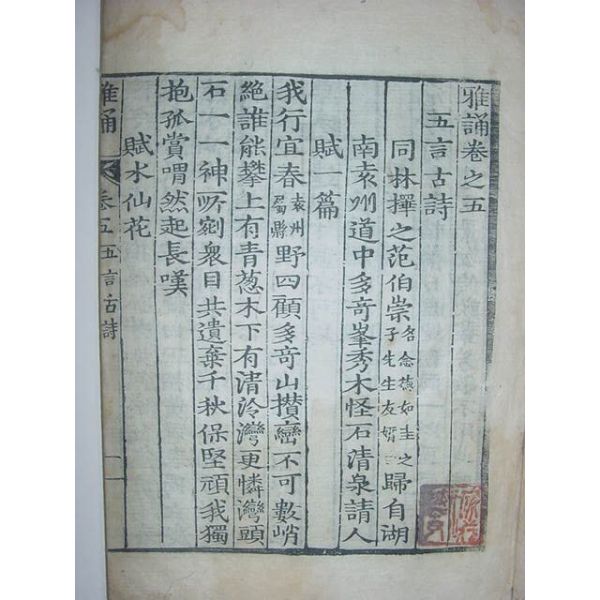 雅誦卷之五
五言古詩
同林擇之范伯崇名念德如圭之子先生友婿歸自湖
南袁州道中多奇峯秀木怪石清泉請人
賦一篇
我行宜春袁州屬縣野四顧多奇山攅巒不可數峭
絶誰能攀上有青葱木下有清泠灣更憐灣頭
石一一神所剜衆目共遺棄千秋保堅頑我獨
抱孤賞喟然起長嘆
賦水仙花
雅誦 卷五 五言古詩 一